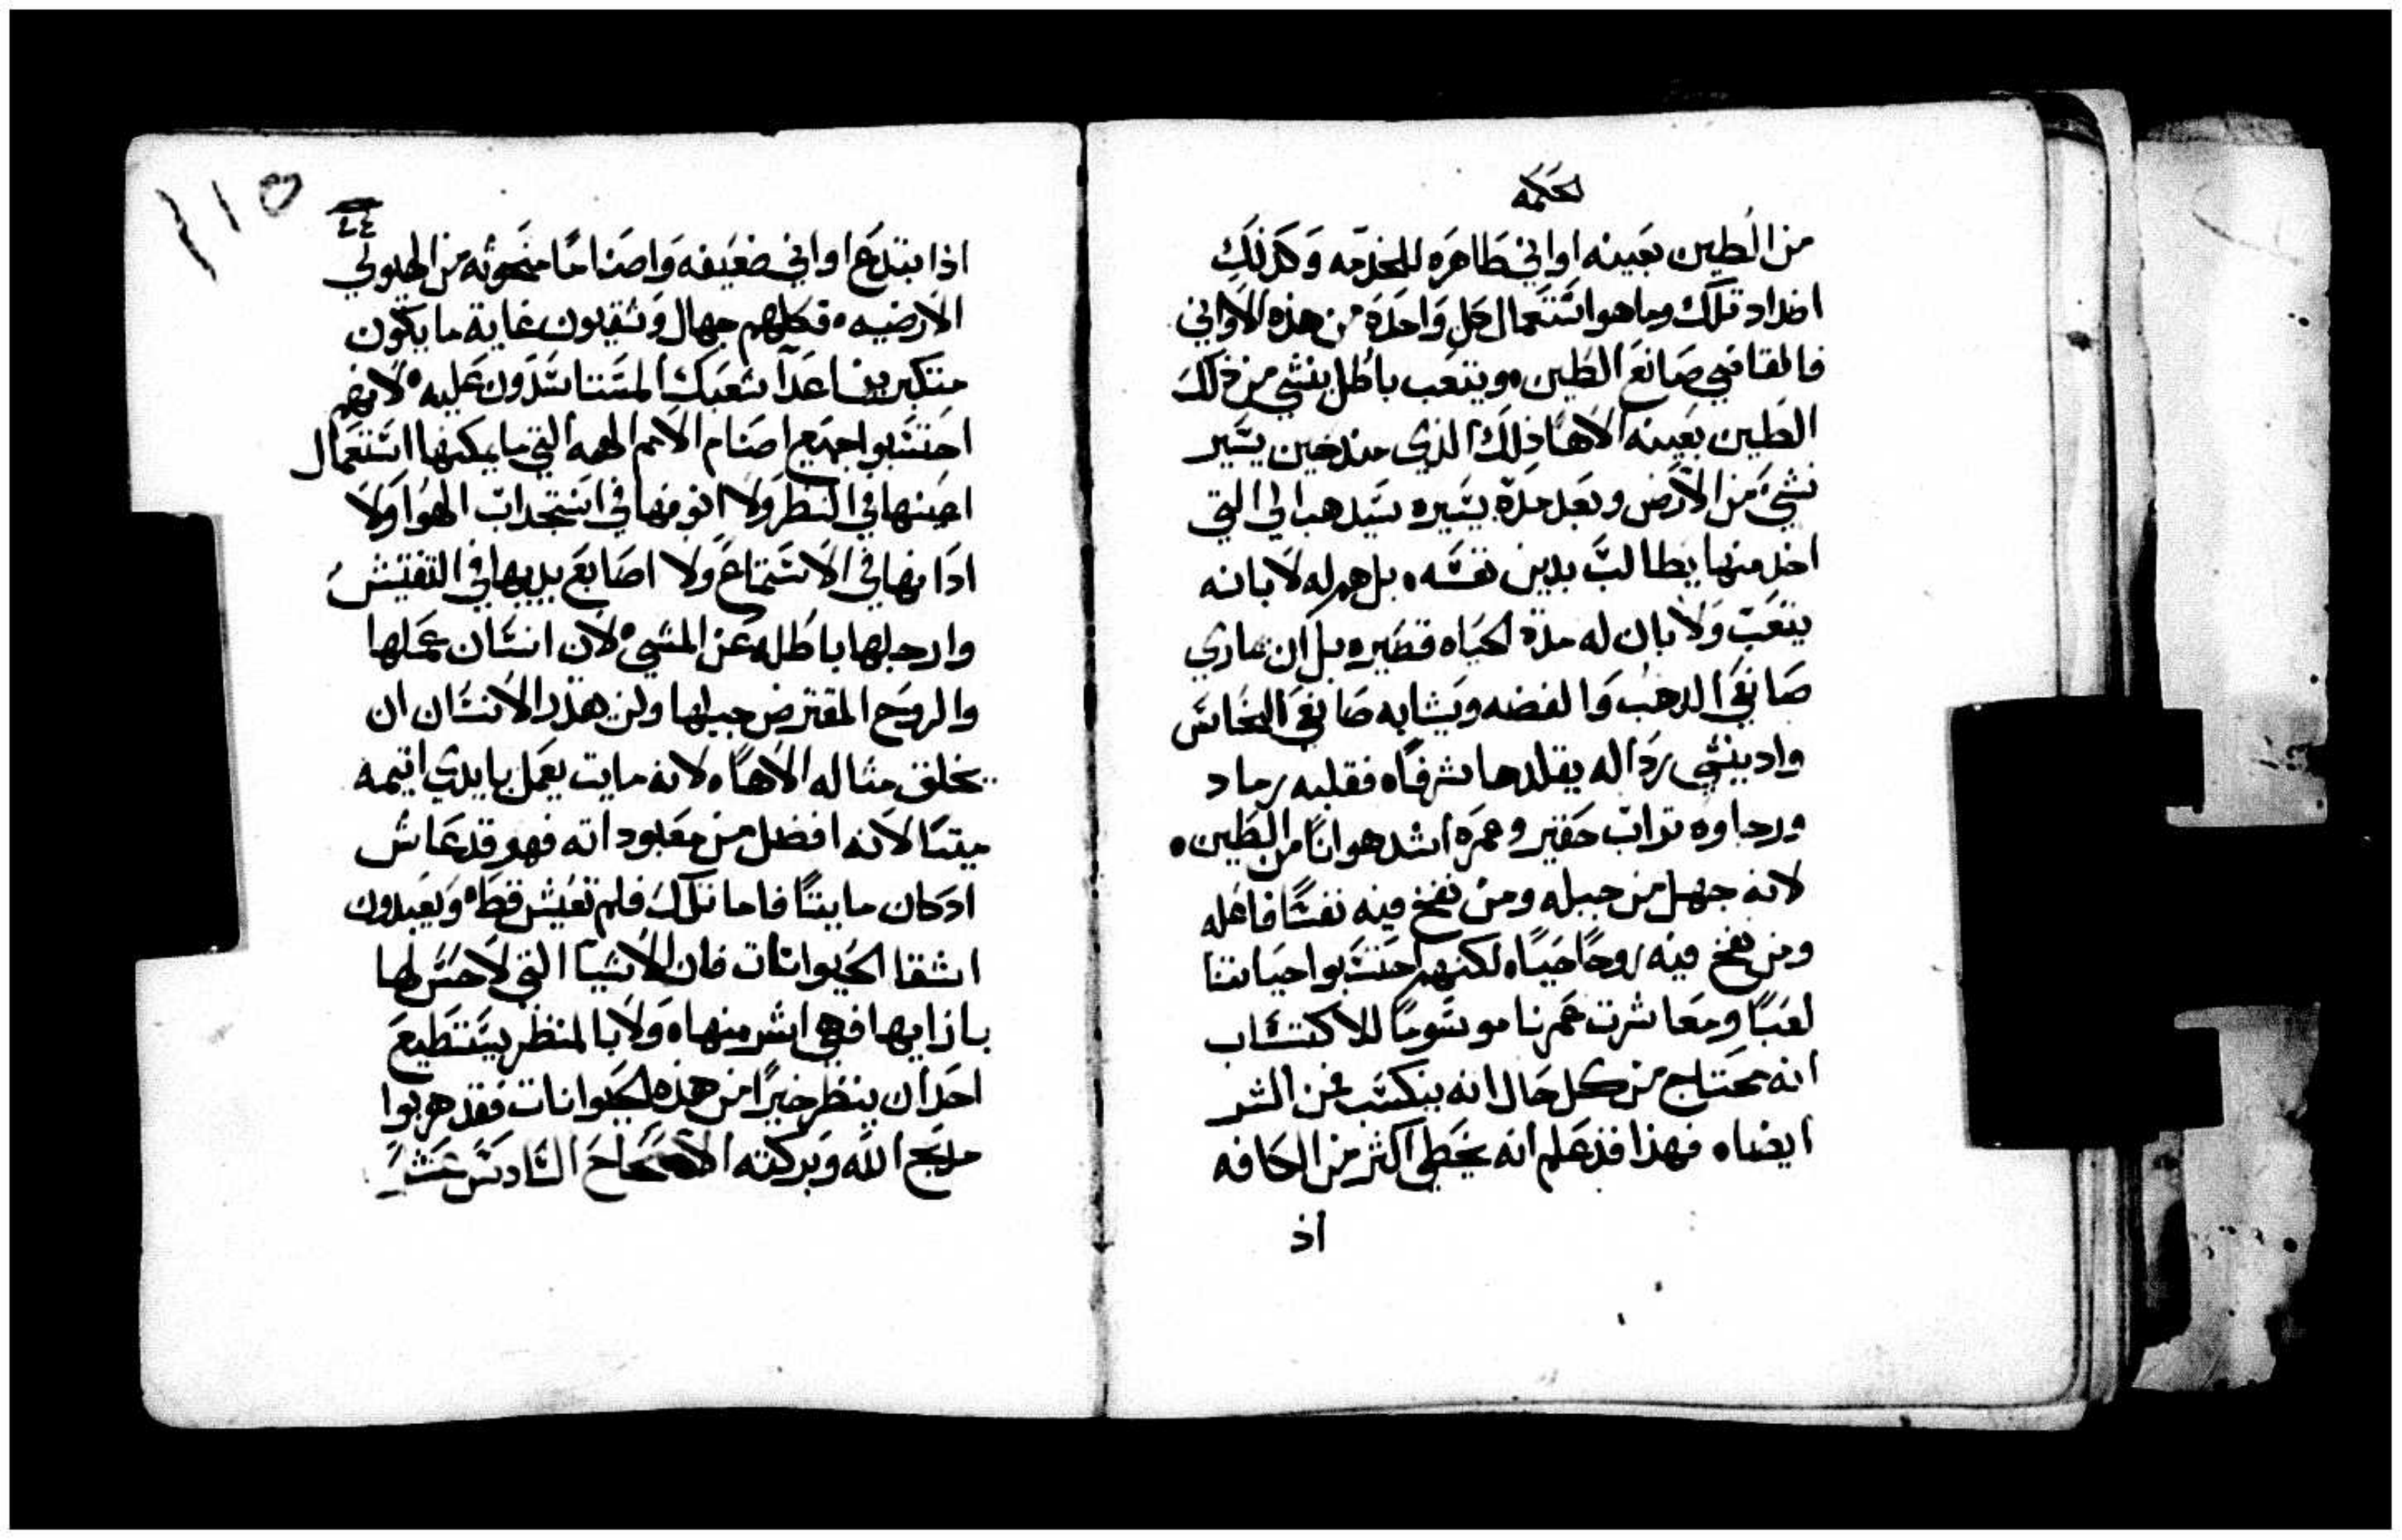 لحكمه
من الطين بعينه اواني طاهره للخدمه وكذلك
اضداد تلك وما هو استعمال كل واحدة من هذه الاواني
فالقاضي صانع الطين. ويتعب باطل ينشي من ذلك
الطين بعينه الاهًا ذلك الذي منذ حين يسير
نشي من الارض وبعد مدة يسيره سيذهب الي التي
اخذ منها يطالب بدين نفسه. بل همه له لا بانه
يتعب ولا بان له مدة الحياه قصيره بل ان عادي
صانعي الذهب والفضه ويشابه صانعي النحاس
واد ينشي رداله يقلدها شرفًا. فقلبه رماد
ورجاوه تراب حقير وعمره اشد هوانًا من الطين.
لانه جهل من جبله ومن نفخ فيه نفسًا فاعله
ومن نفخ فيه روحًا حيًا. لكنهم احتسبوا حياتنا
لعبًا ومعاشرت عمرنا موسومًا للاكتساب
انه محتاج من كل حال انه يتكسب من الشر
ايضا. فهذا قد علم انه يخطي اكثر من الكافه
اذ
١١٥
٤٤
اذا بتدع اواني ضعيفه واصنامًا منحوته من الهيولي
الارضيه. فكلهم جهال وشقيون غاية ما يكون
متكبرين اعدا شعبك المستاسدون عليه. لانهم
احتسبوا جميع اصنام الامم الهه التي ما يمكنها استعمال
اعينها في النظر ولا انوفها في استجداب الهوا ولا
اذانها في الاستماع ولا اصابع يديها في التفتيش
وارجلها باطله عن المشي. لان انسان عملها
والروح المقترض جبلها ولن يقدر الانسان ان
يخلق مثاله الاهًا. لانه مايت يعمل بايدي اثيمه
ميتًا لانه افضل من معبوداته فهو قد عاش
ادكان مايتًا فاما تلك فلم تعيش قط. ويعبدون
اشقا الحيوانات فان الاشيا التي لا حس لها
بازايها فهي اشر منها. ولا بالمنظر يستطيع
احدًا ان ينظر خيرًا من هذه الحيوانات فقد هربوا
مديح الله وبركته الاصحاح السادس عشر